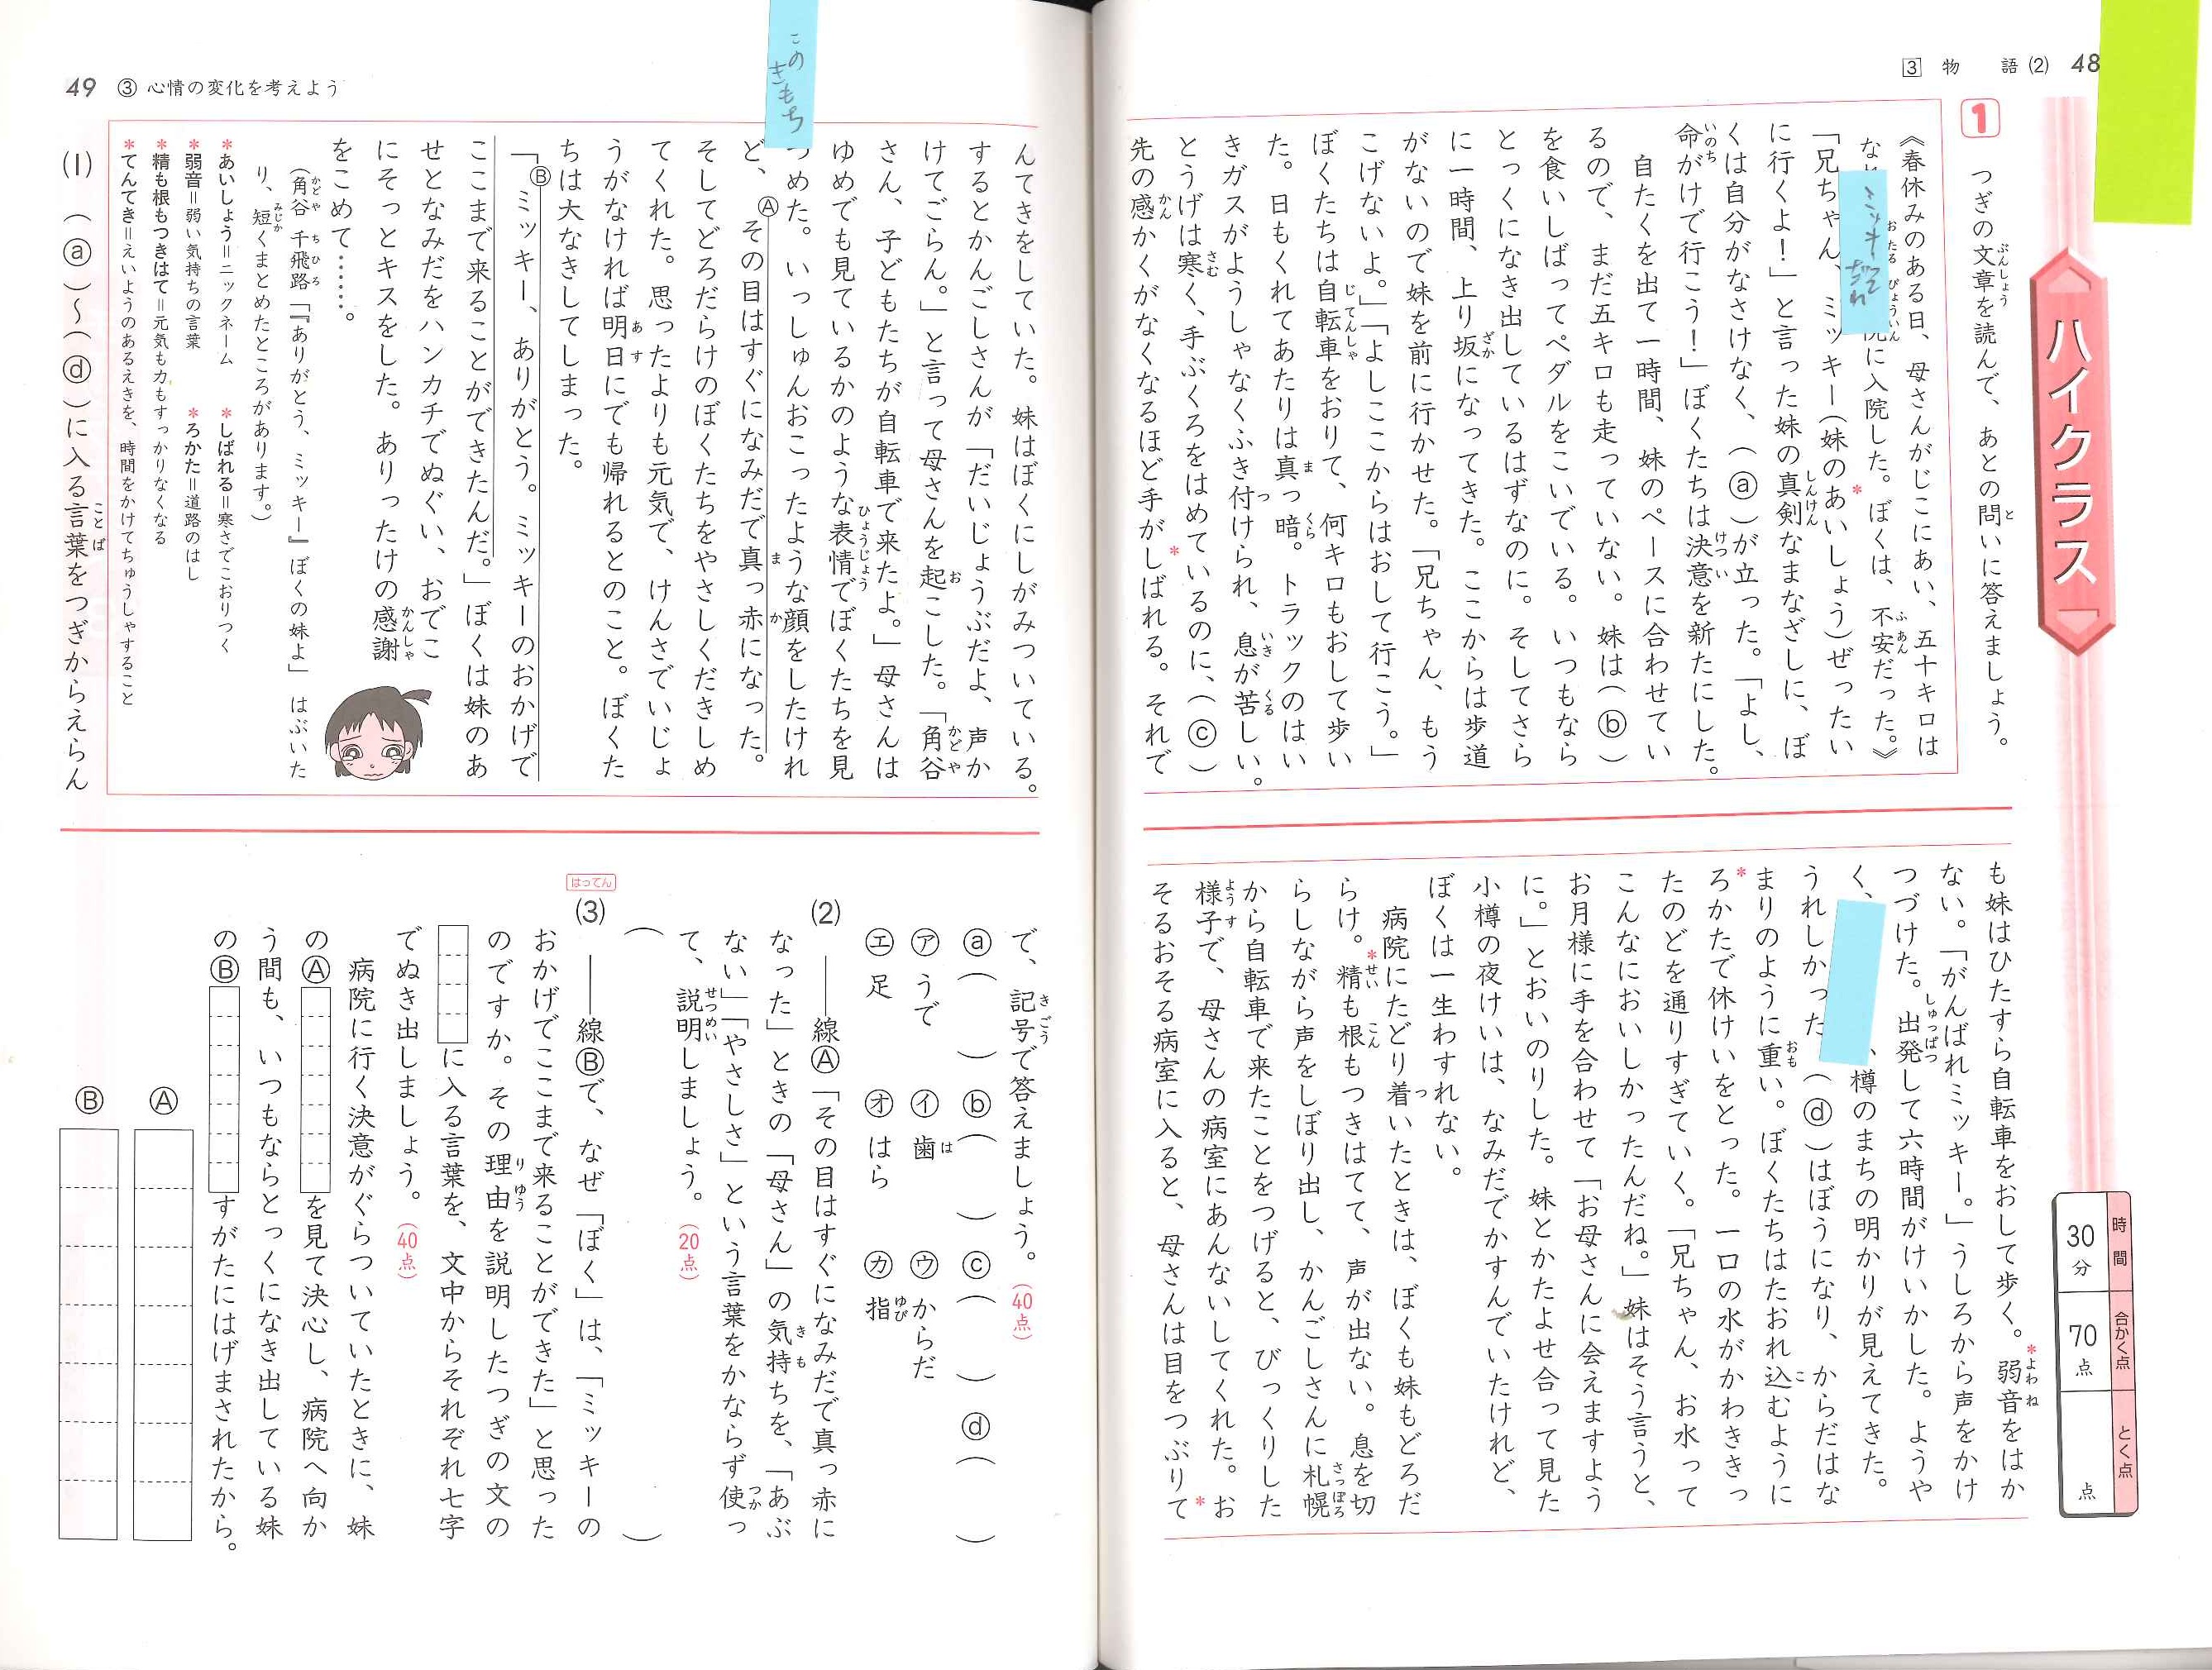 3 物語 (2) 48
ハイクラス
時間 30分
合かく点 70点
とく点 点
1 つぎの文章を読んで、あとの問いに答えましょう。
《春休みのある日、母さんがじこにあい、五十キロは
な
に入院した。ぼくは、不安だった。》
ミッキーってだれ
「兄ちゃん、ミッキー(妹のあいしょう)ぜったい
に行くよ!」と言った妹の真剣なまなざしに、ぼ
くは自分がなさけなく、(ⓐ)が立った。「よし、
命がけで行こう!」ぼくたちは決意を新たにした。
自たくを出て一時間、妹のペースに合わせてい
るので、まだ五キロも走っていない。妹は(ⓑ)
を食いしばってペダルをこいでいる。いつもなら
とっくになき出しているはずなのに。そしてさら
に一時間、上り坂になってきた。ここからは歩道
がないので妹を前に行かせた。「兄ちゃん、もう
こげないよ。」「よしここからはおして行こう。」
ぼくたちは自転車をおりて、何キロもおして歩い
た。日もくれてあたりは真っ暗。トラックのはい
きガスがようしゃなくふき付けられ、息が苦しい。
とうげは寒く、手ぶくろをはめているのに、(ⓒ)
先の感かくがなくなるほど手が*しばれる。それで
も妹はひたすら自転車をおして歩く。*弱音をはか
ない。「がんばれミッキー。」うしろから声をかけ
つづけた。出発して六時間がけいかした。ようや
く、
樽のまちの明かりが見えてきた。
うれしかった
(ⓓ)はぼうになり、からだはな
まりのように重い。ぼくたちはたおれ込むように
*ろかたで休けいをとった。一口の水がかわききっ
たのどを通りすぎていく。「兄ちゃん、お水って
こんなにおいしかったんだね。」妹はそう言うと、
お月様に手を合わせて「お母さんに会えますよう
に。」とおいのりした。妹とかたよせ合って見た
小樽の夜けいは、なみだでかすんでいたけれど、
ぼくは一生わすれない。
病院にたどり着いたときは、ぼくも妹もどろだ
らけ。*精も根もつきはてて、声が出ない。息を切
らしながら声をしぼり出し、かんごしさんに札幌
から自転車で来たことをつげると、びっくりした
様子で、母さんの病室にあんないしてくれた。お
そるおそる病室に入ると、母さんは目をつぶり*て
49 ③ 心情の変化を考えよう
この
きもち
んてきをしていた。妹はぼくにしがみついている。
するとかんごしさんが「だいじょうぶだよ、声か
けてごらん。」と言って母さんを起こした。「角谷
さん、子どもたちが自転車で来たよ。」母さんは
ゆめでも見ているかのような表情でぼくたちを見
つめた。いっしゅんおこったような顔をしたけれ
ど、Ⓐその目はすぐになみだで真っ赤になった。
そしてどろだらけのぼくたちをやさしくだきしめ
てくれた。思ったよりも元気で、けんさでいじょ
うがなければ明日にでも帰れるとのこと。ぼくた
ちは大なきしてしまった。
「Ⓑミッキー、ありがとう。ミッキーのおかげで
ここまで来ることができたんだ。」ぼくは妹のあ
せとなみだをハンカチでぬぐい、おでこ
にそっとキスをした。ありったけの感謝
をこめて……。
(角谷 千飛路「『ありがとう、ミッキー』ぼくの妹よ」 はぶいた
り、短くまとめたところがあります。)
*あいしょう=ニックネーム *しばれる=寒さでこおりつく
*弱音=弱い気持ちの言葉 *ろかた=道路のはし
*精も根もつきはて=元気も力もすっかりなくなる
*てんてき=えいようのあるえきを、時間をかけてちゅうしゃすること
(1) (ⓐ)~(ⓓ)に入る言葉をつぎからえらん
で、記号で答えましょう。(40点)
ⓐ( ) ⓑ( ) ⓒ( ) ⓓ( )
㋐ うで ㋑ 歯 ㋒ からだ
㋓ 足 ㋔ はら ㋕ 指
(2) ――線Ⓐ「その目はすぐになみだで真っ赤に
なった」ときの「母さん」の気持ちを、「あぶ
ない」「やさしさ」という言葉をかならず使っ
て、説明しましょう。(20点)
( )
はってん
(3) ――線Ⓑで、なぜ「ぼく」は、「ミッキーの
おかげでここまで来ることができた」と思った
のですか。その理由を説明したつぎの文の
に入る言葉を、文中からそれぞれ七字
でぬき出しましょう。(40点)
病院に行く決意がぐらついていたときに、妹
のⒶ を見て決心し、病院へ向か
う間も、いつもならとっくになき出している妹
のⒷ すがたにはげまされたから。
Ⓐ
Ⓑ